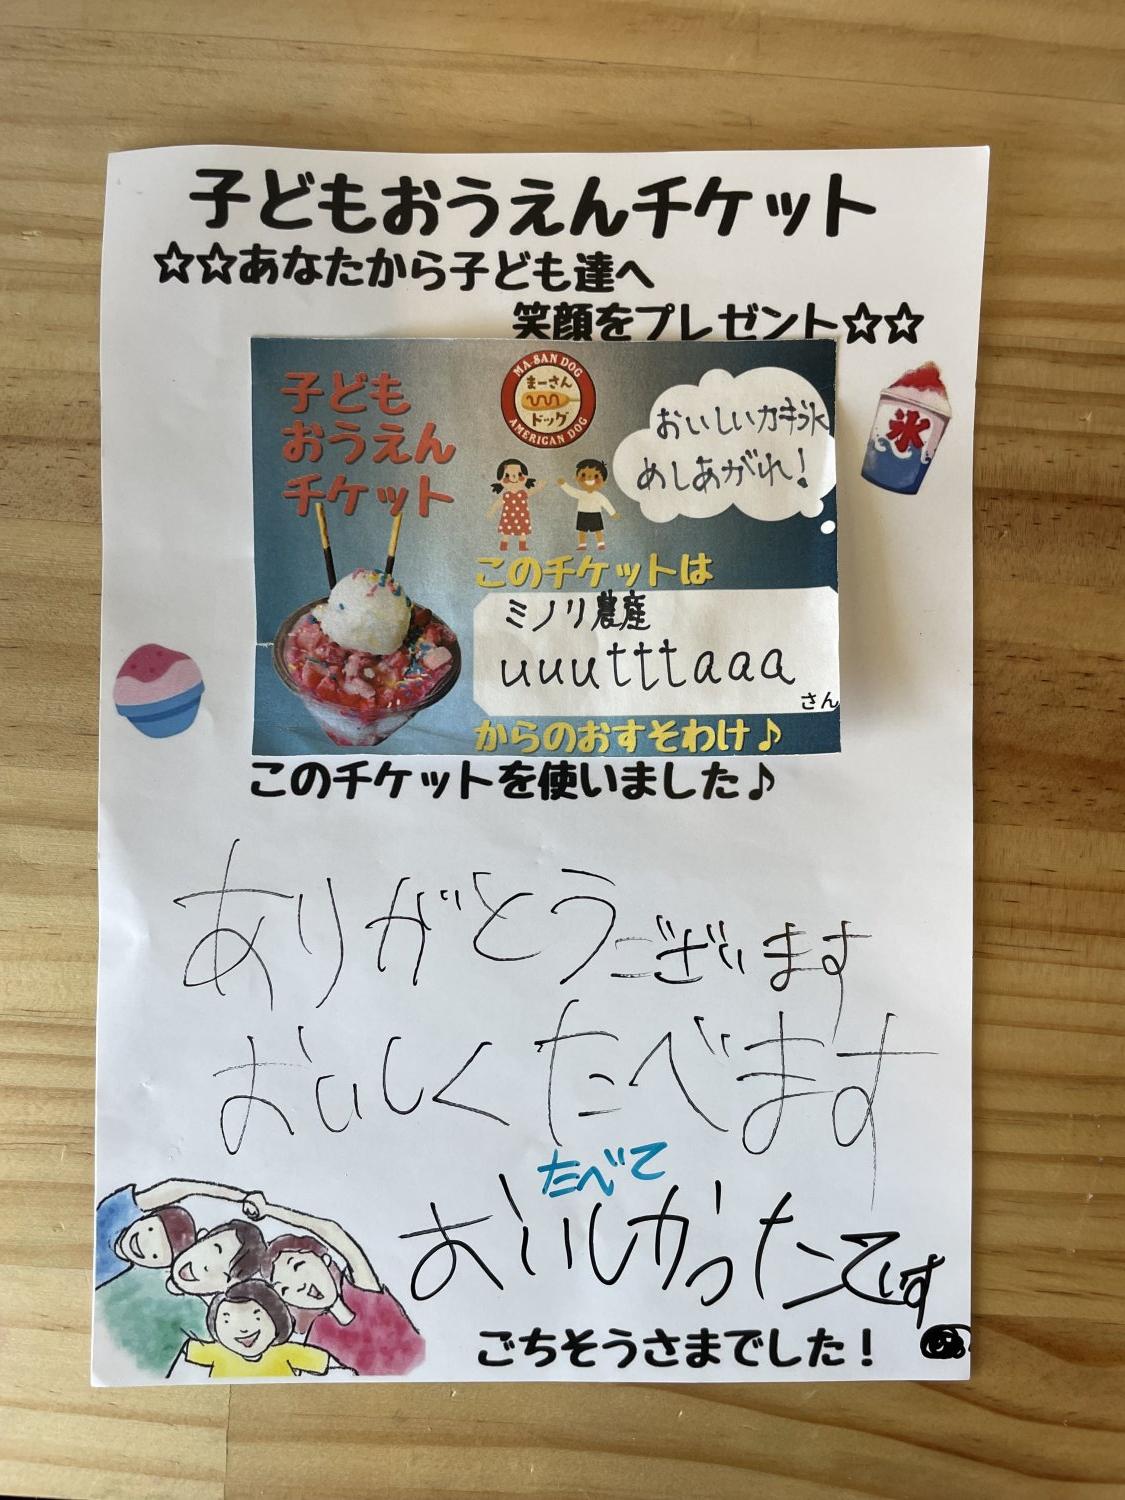 子どもおうえんチケット
☆☆あなたから子ども達へ
笑顔をプレゼント☆☆
子ども
おうえん
チケット
MA-SAN DOG
まーさん
ドッグ
AMERICAN DOG
おいしいカキ氷
めしあがれ!
氷
このチケットは
ミノリ農産
uuutttaaa
さん
からのおすそわけ♪
このチケットを使いました♪
ありがとうございます
おいしくたべます
たべて
おいしかったです
ごちそうさまでした!